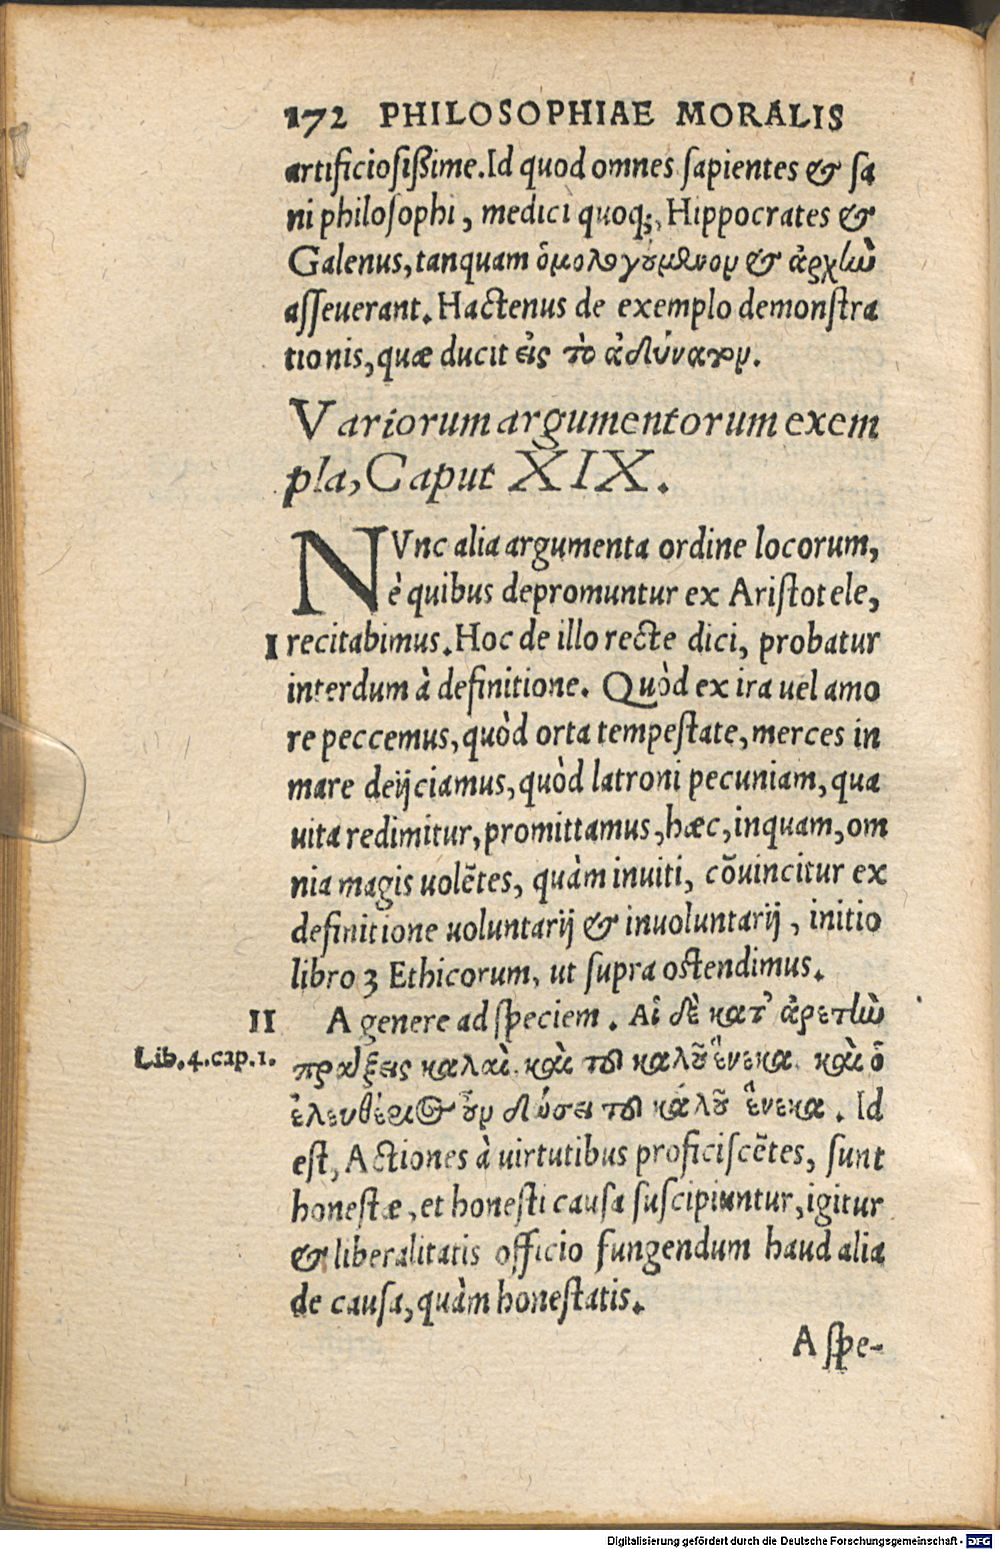 172 PHILOSOPHIAE MORALIS
artificiosißime. Id quod omnes sapientes & sa
ni philosophi, medici quoq;, Hippocrates &
Galenus, tanquam ὁμολογούμενον & ἀρχὴν
asseuerant. Hactenus de exemplo demonstra
tionis, quæ ducit εἰς τὸ ἀδύνατον.
Variorum argumentorum exem
pla, Caput XIX.
NVnc alia argumenta ordine locorum,
è quibus depromuntur ex Aristotele,
I recitabimus. Hoc de illo recte dici, probatur
interdum à definitione. Quòd ex ira uel amo
re peccemus, quòd orta tempestate, merces in
mare deijciamus, quòd latroni pecuniam, qua
uita redimitur, promittamus, hæc, inquam, om
nia magis uolẽtes, quàm inuiti, cõuincitur ex
definitione uoluntarij & inuoluntarij, initio
libro 3 Ethicorum, ut supra ostendimus.
II A genere ad speciem. Αἱ δὲ κατ' ἀρετὴν
Lib. 4. cap. 1. πράξεις καλαὶ. καὶ τοῦ καλοῦ ἕνεκα. καὶ ὁ
ἐλευθέριος οὖν δώσει τοῦ καλοῦ ἕνεκα. Id
est, Actiones à uirtutibus proficiscẽtes, sunt
honestæ, et honesti causa suscipiuntur, igitur
& liberalitatis officio fungendum haud alia
de causa, quàm honestatis.
A spe-
Digitalisierung gefördert durch die Deutsche Forschungsgemeinschaft - DFG